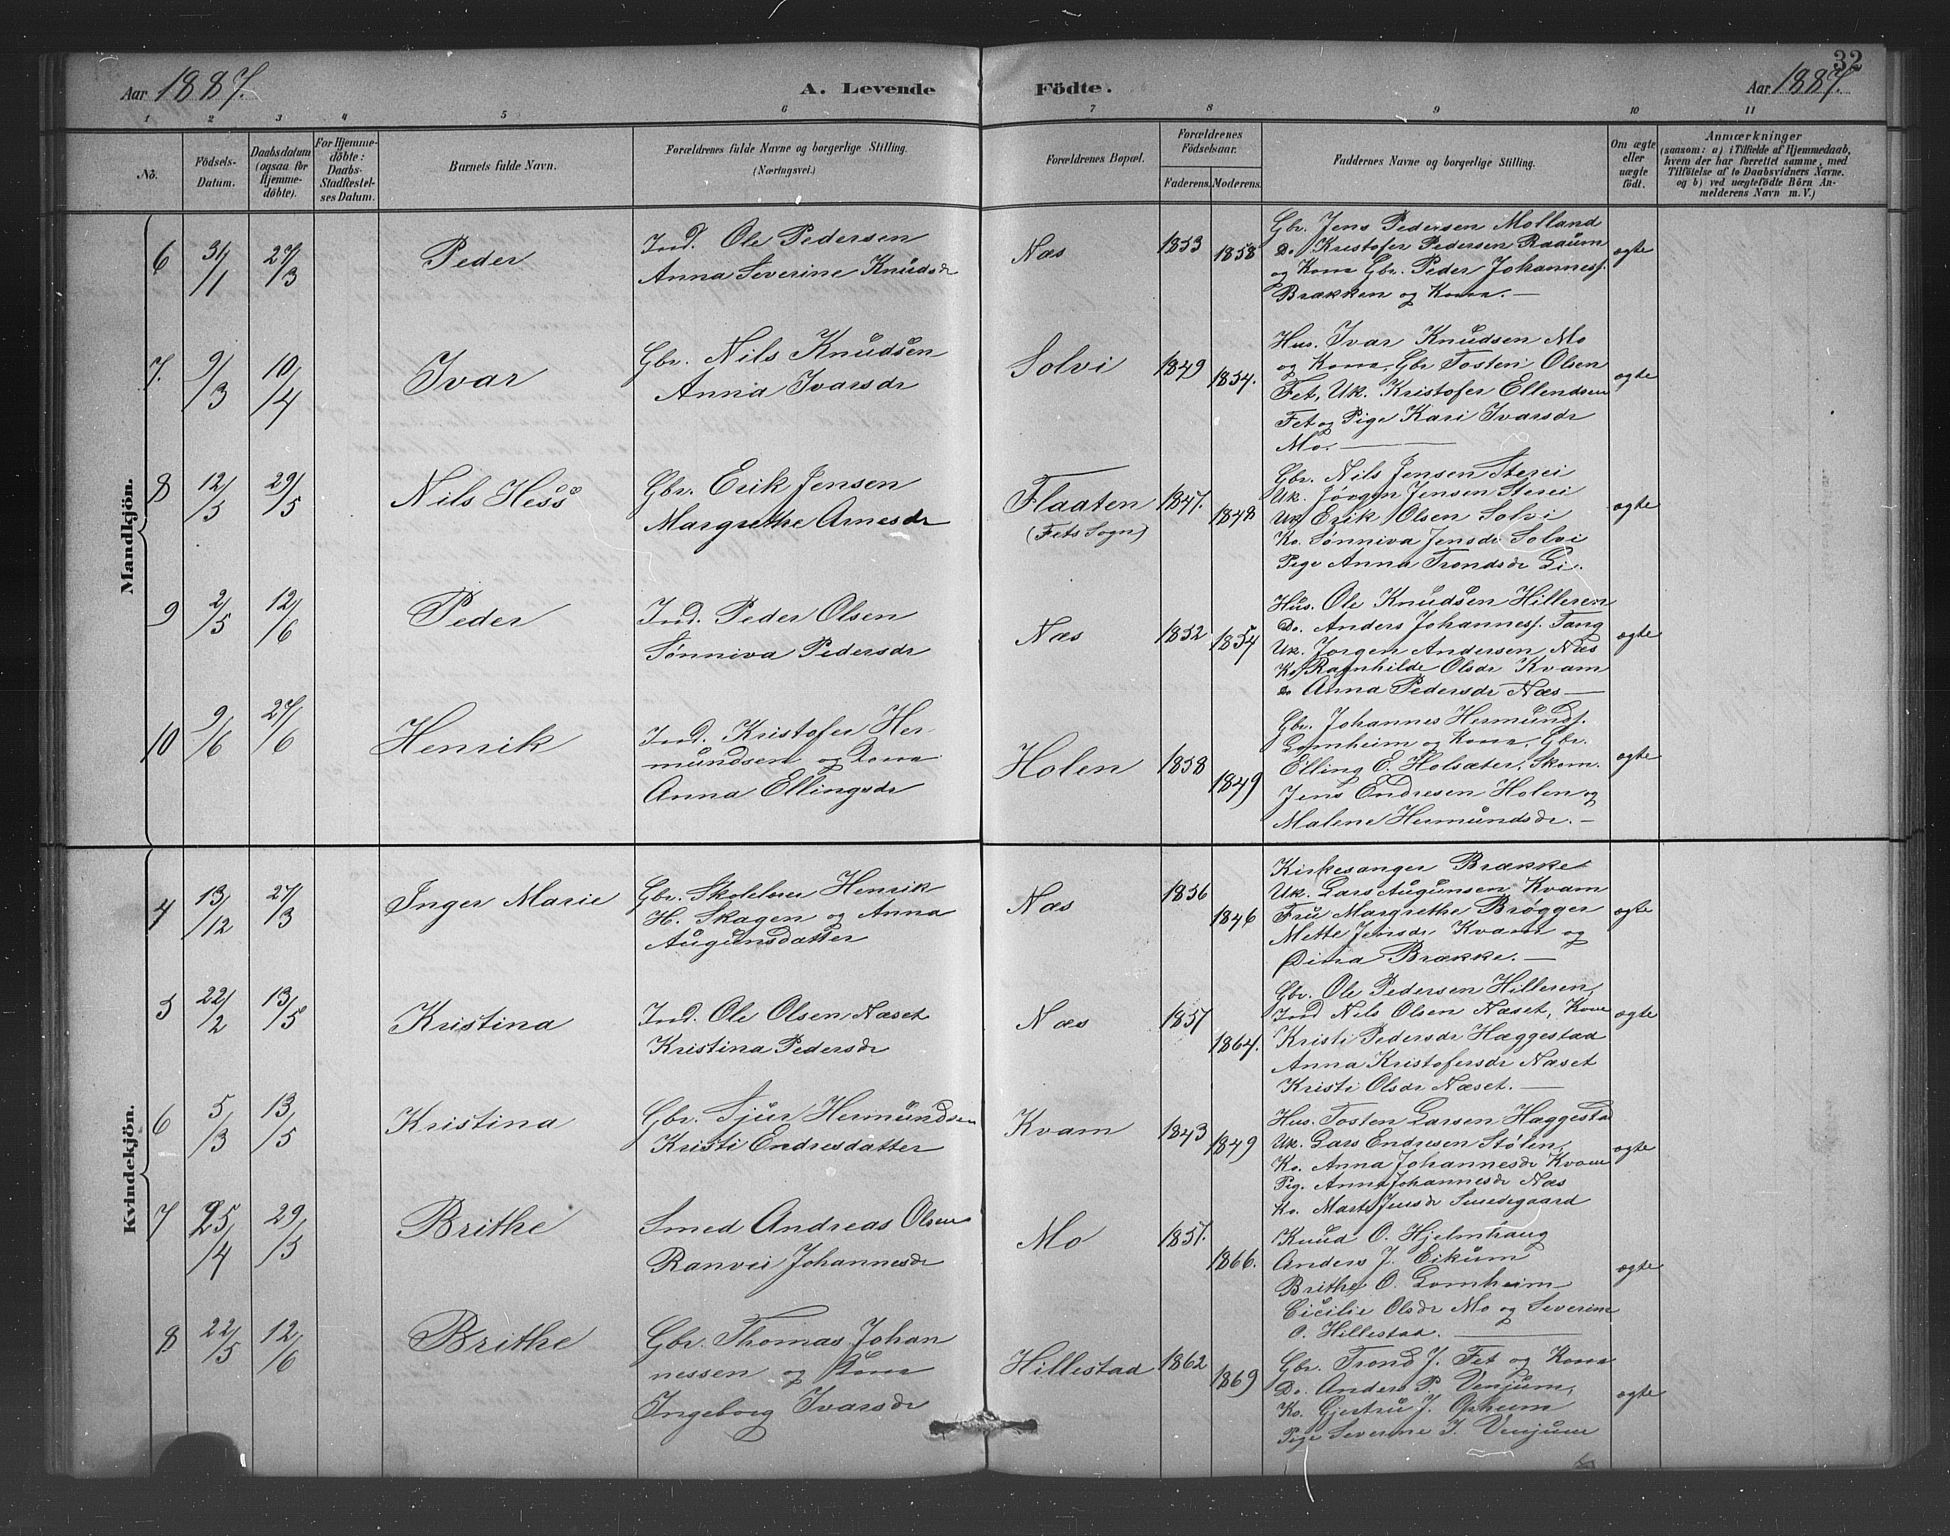 32
Aar 1887. A. Levende Födte. Aar 1887.
1 2 3 4 5 6 7 8 9 10 11
No. Födsels-Datum. Daabsdatum (ogsaa for Hjemme-döbte). For Hjemme-döbte: Daabs-Stadfæstel-ses Datum. Barnets fulde Navn. Forældrenes fulde Navne og borgerlige Stilling. (Næringsvei.) Forældrenes Bopæl. Forældrenes Födselsaar. Faderens. Moderens. Faddernes Navne og borgerlige Stilling. Om ægte eller uægte födt. Anmærkninger (saasom: a) i Tilfælde af Hjemmedaab, hvem der har forrettet samme, med Tilföielse af to Daabsvidners Navne. og b) ved uægtefödte Börn An-melderens Navn m.V.)
Mandkjön.
6 31/1 27/3 Peder
Ind. Ole Pedersen
Anna Severine Knudsdr
Næs 1853 1858
Gbr. Jens Pedersen Molland
Do. Kristofer Pedersen Raaum
og Kona Gbr. Peder Johanness.
Brækken og Kona. —
ægte
7. 9/3 10/4 Ivar
Gbr. Nils Knudsen
Anna Ivarsdr
Solvi 1849 1854.
Hus. Ivar Knudsen Mo
og Kona, Gbr Tosten Olsen
Fet, Uk. Kristofer Ellendsen
Fet og Pige Kari Ivarsdr
Mo. —
ægte
8 12/5 29/5 Nils Hess
Gbr. Erik Jensen
Margrethe Arnesdr
Flaaten (Fets Sogn) 1847. 1848
Gbr. Nils Jensen Sterei
Uk. Jørgen Jensen Sterei
Uk Erik Olsen Solvi
Ko. Sønniva Jensdr Solvi
Pige Anna Trondsdr Li.
ægte
9 2/5 12/6 Peder
Ind. Peder Olsen
Sønniva Pedersdr
Næs 1852 1854
Hus. Ole Knudsen Hilleren
Do. Anders Johanness. Tang
Uk. Jørgen Andersen Næs
Ko Ragnhilde Olsdr Kvam
Do Anna Pedersdr Næs —
ægte
10 9/6 27/6 Henrik
Ind. Kristofer Her-
mundsen og Kona
Anna Ellingsdr
Holen 1858 1849
Gbr. Johannes Hermunds.
Lomheim og Kona, Gbr.
Elling E. Holsæter, Skom.
Jens Endresen Holen og
Malene Hermundsdr. —
ægte
Kvindekjön.
4 13/12 27/3 Inger Marie
Gbr. Skolelærer Henrik
H. Skagen og Anna
Augunsdatter
Næs 1856 1846
Kirkesanger Brække
Uk. Lars Augunsen Kvam
Fru Margrethe Brøgger
Mette Jensdr Kvam og
Dina Brække. —
ægte
5 22/2 13/5 Kristina
Ind. Ole Olsen Næset
Kristina Pedersdr
Næs 1857 1864.
Gbr. Ole Pedersen Hilleren,
Ind Nils Olsen Næset, Kone
Kristi Pedersdr Hæggestad
Anna Kristofersdr Næset
Kristi Olsdr Næset. —
ægte
6 5/3 13/5 Kristina
Gbr. Sjur Hermundsen
Kristi Endresdatter
Kvam 1843 1849
Hus. Tosten Larsen Hæggestad
Uk. Lars Endresen Stølen,
Ko. Anna Johannesdr Kvam
Pig. Anna Johannesdr Næs
Ko. Marta Jensdr Smedegaard
ægte
7 25/4 29/5 Brithe
Smed Andreas Olsen
Ranvei Johannesdr
Mo 1857. 1866.
Knud O. Hjelmhaug
Anders J. Eikum
Brithe O. Lomheim
Cicilie Olsdr Mo og Severine
O. Hillestad. —
ægte
8 22/5 12/6 Brithe
Gbr. Thomas Johan
nessen og Kona
Ingeborg Ivarsdr
Hillestad 1862 1869
Gbr. Trond J. Fet og Kona
Do. Anders P. Venjum,
Ko. Gjertru J. Opheim
Pige Severine I. Venjum
ægte